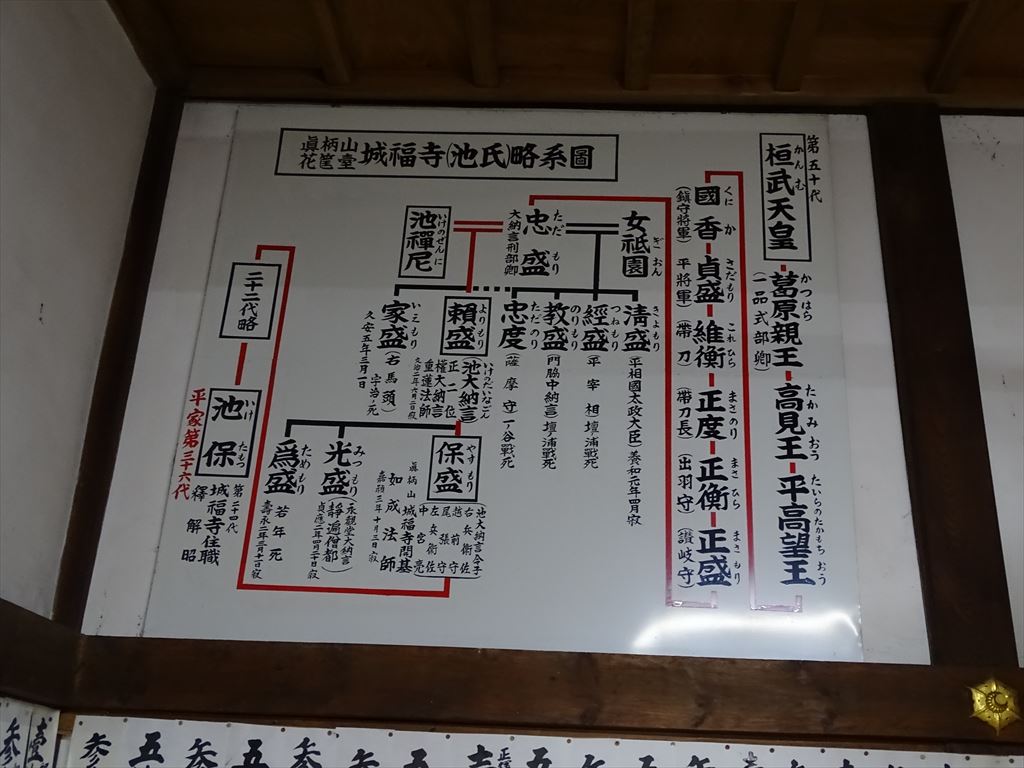 眞柄山
花筐堂
城福寺(池氏)略系圖
第五十代
桓武天皇
かんむ
葛原親王
かつはら
(一品式部卿)
高見王
たかみおう
平高望王
たいらのたかもちおう
國香
くにか
(鎮守將軍)
貞盛
さだもり
平將軍)
維衡
これひら
(帯刀)
正度
まさのり
(帯刀長)
正衡
まさひら
(出羽守)
正盛
まさもり
(讃岐守)
女祇園
ぎおん
忠盛
ただもり
大納言刑部卿
池禪尼
いけのぜんに
清盛
きよもり
(平相國太政大臣)養和元年四月寂
經盛
つねもり
(平宰相壇浦戦死
教盛
のりもり
門脇中納言)壇浦戦死
忠度
ただのり
(薩摩守)一谷戰死
賴盛
よりもり
(池大納言)
いけのだいなごん
正二位
權大納言
重蓮法師
文治二年六月二日寂
家盛
いえもり
(右馬頭)
久安五年三月一日
宇治ノ死
保盛
やすもり
池大納言合子
右兵衛佐
越前守
尾張守
左兵衛佐
中宮亮
眞柄山
城福寺開基
如成法師
嘉禄三年十月三日寂
光盛
みつもり
(永觀堂大納言)
静遍僧都)
貞應二年四月二十日寂
爲盛
ためもり
若年死
壽永二年三月十一日寂
二十二代略
池保
いけたもつ
平家第三十六代
第二十四代
城福寺住職
釋解昭